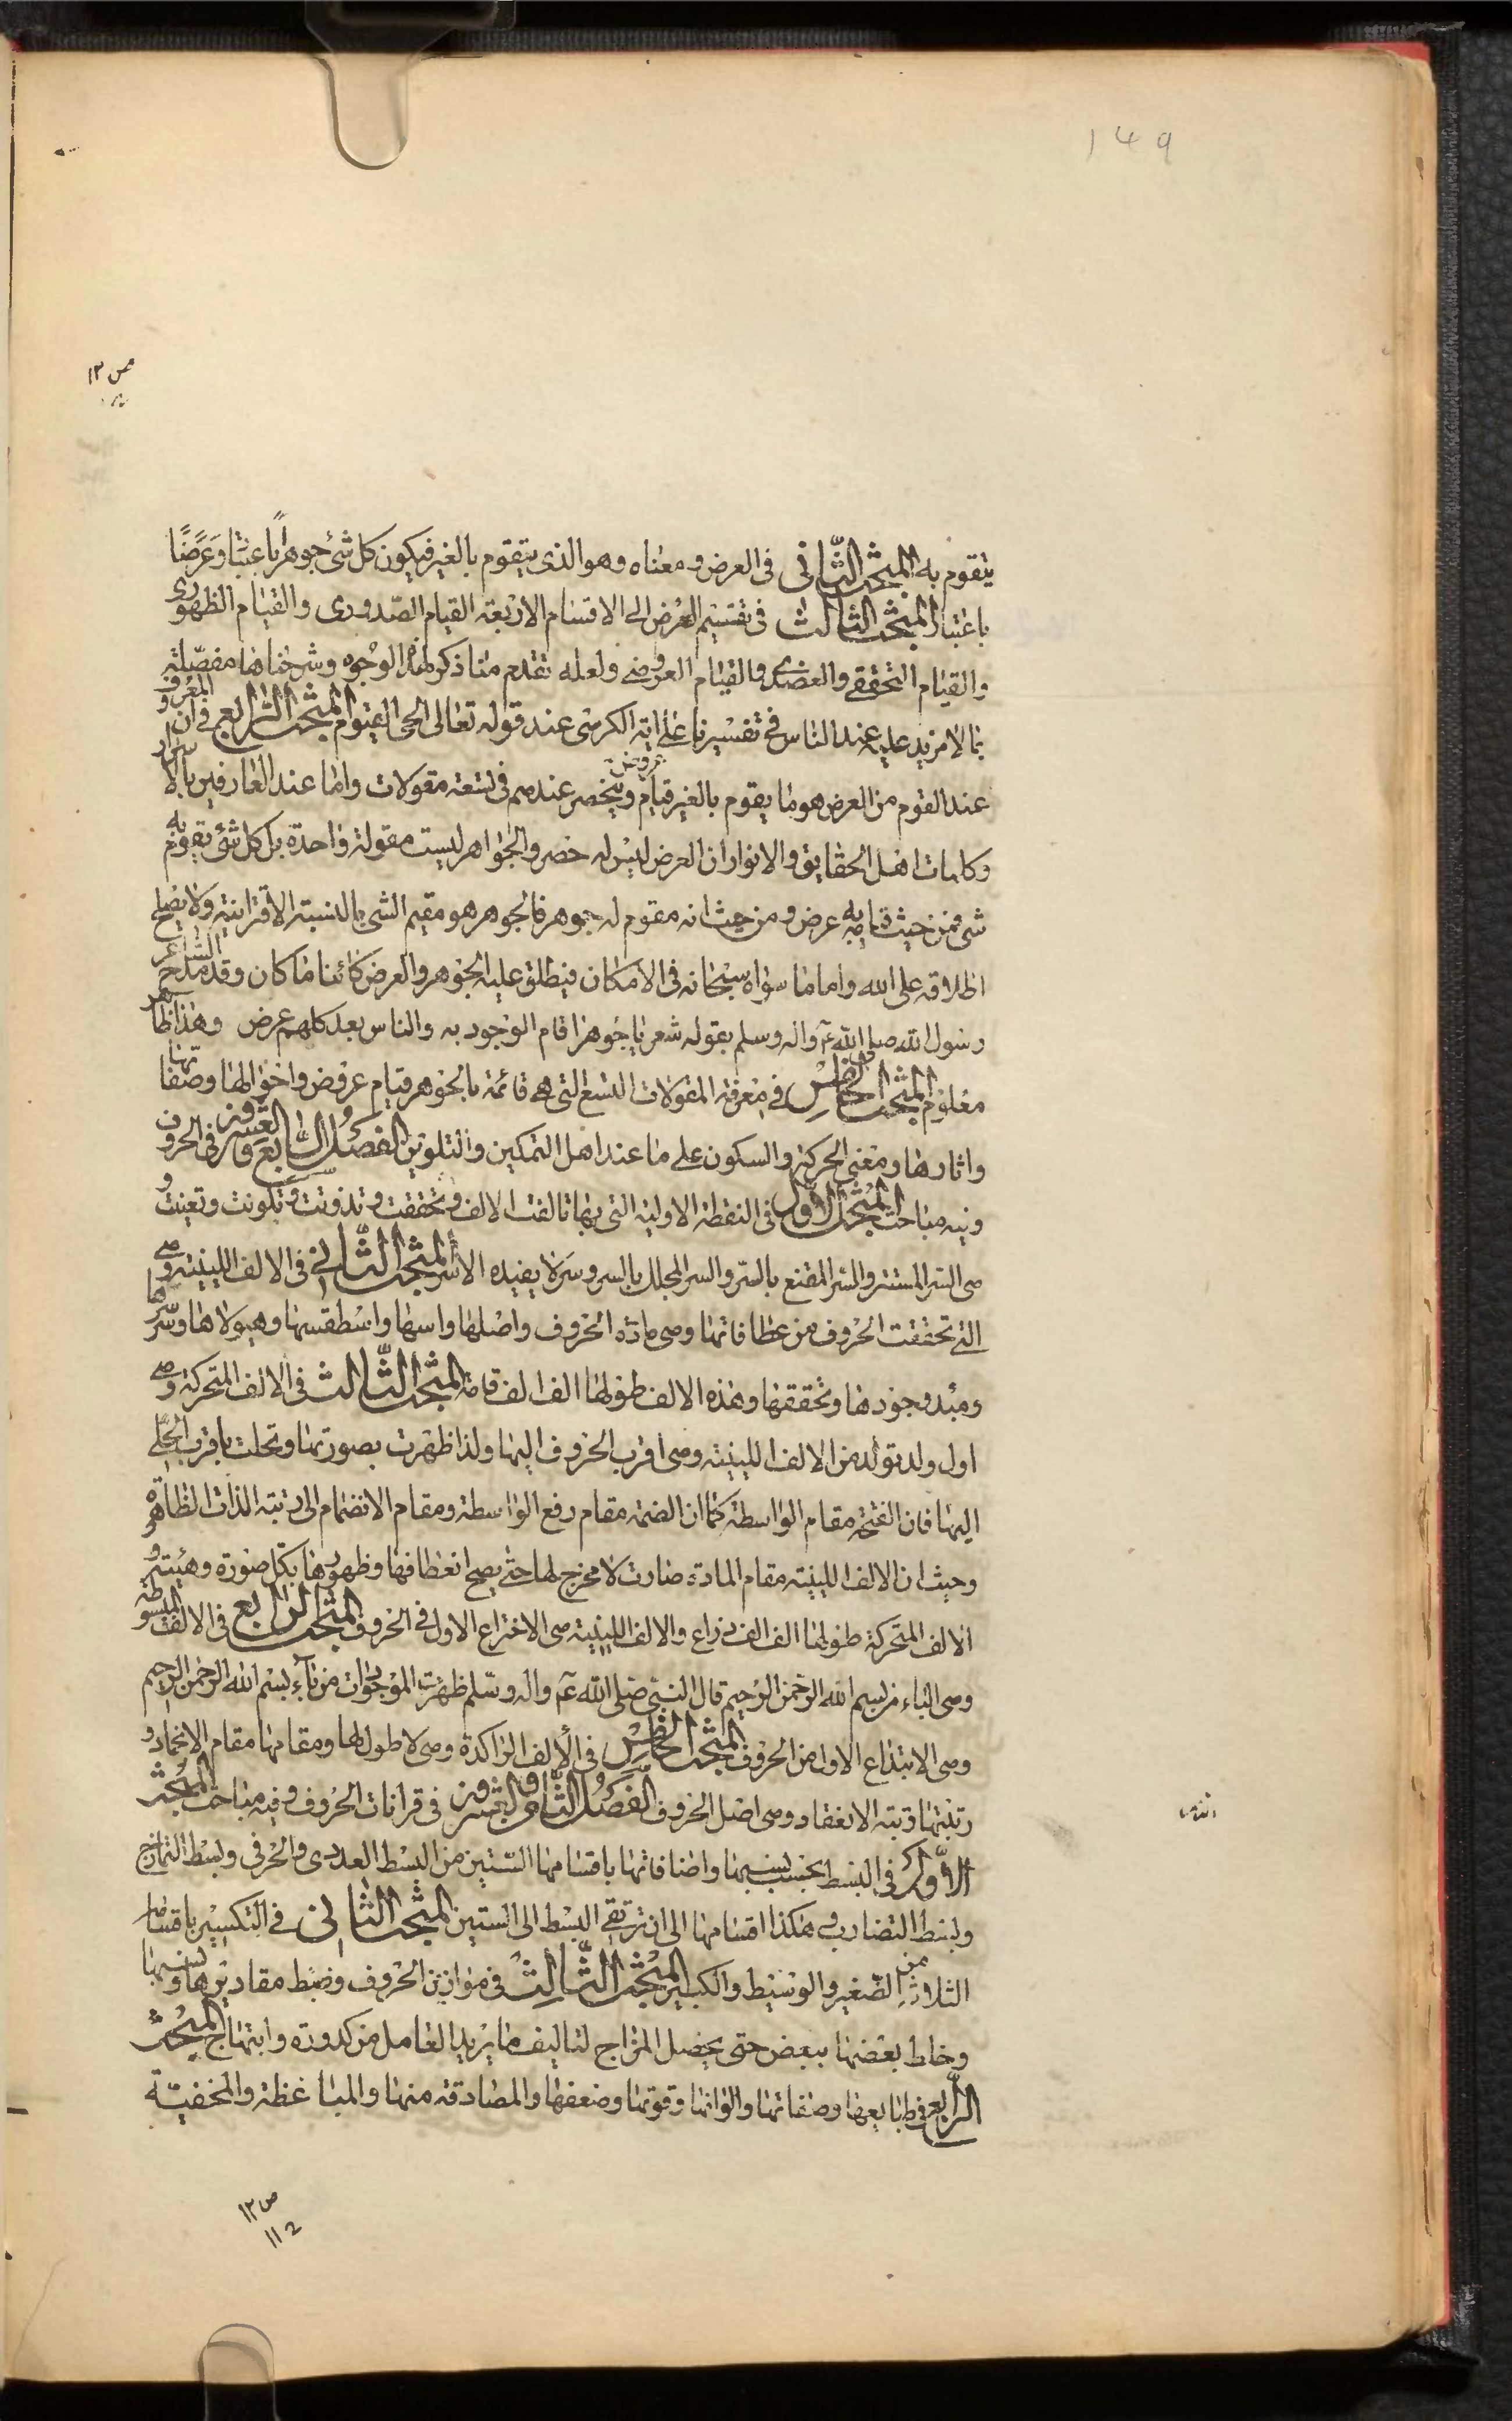 149
ص ١٣
يتقوم به المبحث الثاني في العرض ومعناه وهو الذي يتقوم بالغير فيكون كل شئ جوهرا باعتبار وعرضا
باعتبار المبحث الثالث في تقسيم العرض الى الاقسام الاربعة القيام الصدوري والقيام الظهوري
والقيام التحققي والعضدي والقيام العروضي ولعله تقدم منا ذكر هذه الوجوه وشرحناها مفصلة
بما لا مزيد عليه عند الناس في تفسيرنا على اية الكرسي عند قوله تعالى الحي القيوم المبحث الرابع في ان المعروف
عند القوم من العرض هو ما يقوم بالغير قيام عروض وينحصر عندهم في تسعة مقولات واما عند العارفين بالاسرار
وكلمات اهل الحقايق والانوار ان العرض ليس له حصر والجواهر ليست مقولة واحدة بل كل شئ يتقوم به
شئ فمن حيث قيامه به عرض ومن حيث انه مقوم له جوهر فالجوهر هو مقيم الشئ بالنسبة الاقترانية ولا يصلح
اطلاقه على الله واما ما سواه سبحانه في الامكان فيطلق عليه الجوهر والعرض كائنا ما كان وقد مدح الشاعر
رسول الله صلى الله عليه واله وسلم بقوله شعر يا جوهرا قام الوجود به والناس بعدك كلهم عرض وهذا ظاهر
معلوم المبحث الخامس في معرفة المقولات التسع التي هي قائمة بالجوهر قيام عروض واحوالها وصفاتها
واثارها ومعنى الحركة والسكون على ما عند اهل التمكين والتلوين الفصل السابع والعشرون في الحروف
وفيه مباحث المبحث الاول في النقطة الاولية التي بها تالفت الالف وتحققت وتذوتت وتكونت وتعينت و
هي السر المستتر والسر المقنع بالسر والسر المجلل بالسر وسر لا يفيده الا سر المبحث الثاني في الالف اللينية وهي
التي تحققت الحروف من عطافاتها وهي مادة الحروف واصلها واسها واسطقسها وهيولاها وسرها
ومبدء وجودها وتحققها وهذه الالف طولها الف الف قامة المبحث الثالث في الالف المتحركة وهي
اول ولد تولد من الالف اللينية وهي اقرب الحروف اليها ولذا ظهرت بصورتها وتحلت باقرب الحلي
اليها فان الفتحة مقام الواسطة كما ان الضمة مقام رفع الواسطة ومقام الانضمام الى رتبة الذات الظاهرة
وحيث ان الالف اللينية مقام المادة صارت لا مخرج لها حتى يصح انعطافها وظهورها بكل صورة وهيئة و
الالف المتحركة طولها الف الف ذراع والالف اللينية هي الاختراع الاول في الحروف المبحث الرابع في الالف المبسوطة
وهي الباء من بسم الله الرحمن الرحيم قال النبي صلى الله عليه واله وسلم ظهرت الموجودات من باء بسم الله الرحمن الرحيم
وهي الابتداع الاول من الحروف المبحث الخامس في الالف الراكدة وهي لا طول لها ومقامها مقام الانجماد و
رتبتها رتبة الانعقاد وهي اضل الحروف الفصل الثامن والعشرون في قرانات الحروف وفيه مباحث المبحث
الاول في البسط بحسب نسبها واضافاتها باقسامها الستين من البسط العددي والحرفي وبسط التمازج
وبسط التضارب وهكذا اقسامها الى ان ترتقي البسط الى الستين المبحث الثاني في التكسير باقسامها
الثلاثة من الصغير والوسيط والكبير المبحث الثالث في موازين الحروف وضبط مقاديرها ونسبها
وخلط بعضها ببعض حتى يحصل المزاج لتاليف ما يريد العامل من كدورة وابتهاج المبحث
الرابع في طبايعها وصفاتها والوانها وقوتها وضعفها والمصادقة منها والمباغظة والمخفية
ص ١٢
١١٢